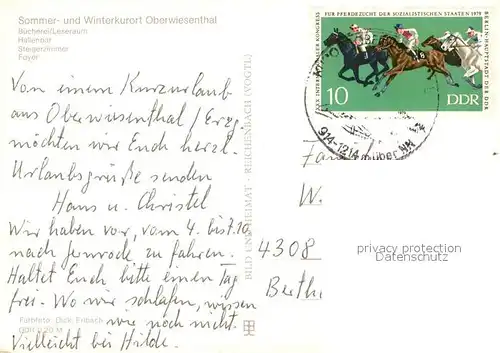 Sommer- und Winterkurort Oberwiesenthal
Bücherei/Leseraum
Hallenbar
Steigerzimmer
Foyer
Von einem Kurzurlaub
aus Oberwiesenthal / Erzg.
möchten wir Euch herzl.
Urlaubsgrüße senden
Hans u. Christel
Wir haben vor, vom 4. bis 7.10.
nach Jenrode zu fahren.
Haltet Euch bitte einen Tag
frei. Wo wir schlafen, wissen
wir noch nicht.
Vielleicht bei Hilde.
Farbfoto: Dick, Erlbach
BILD UND HEIMAT · REICHENBACH (VOGTL)
KONGRESS FÜR PFERDEZUCHT DER SOZIALISTISCHEN STAATEN 1978
BERLIN-HAUPTSTADT DER DDR
10
DDR
914-1214 m über NN
W.
4308
privacy protection
Datenschutz